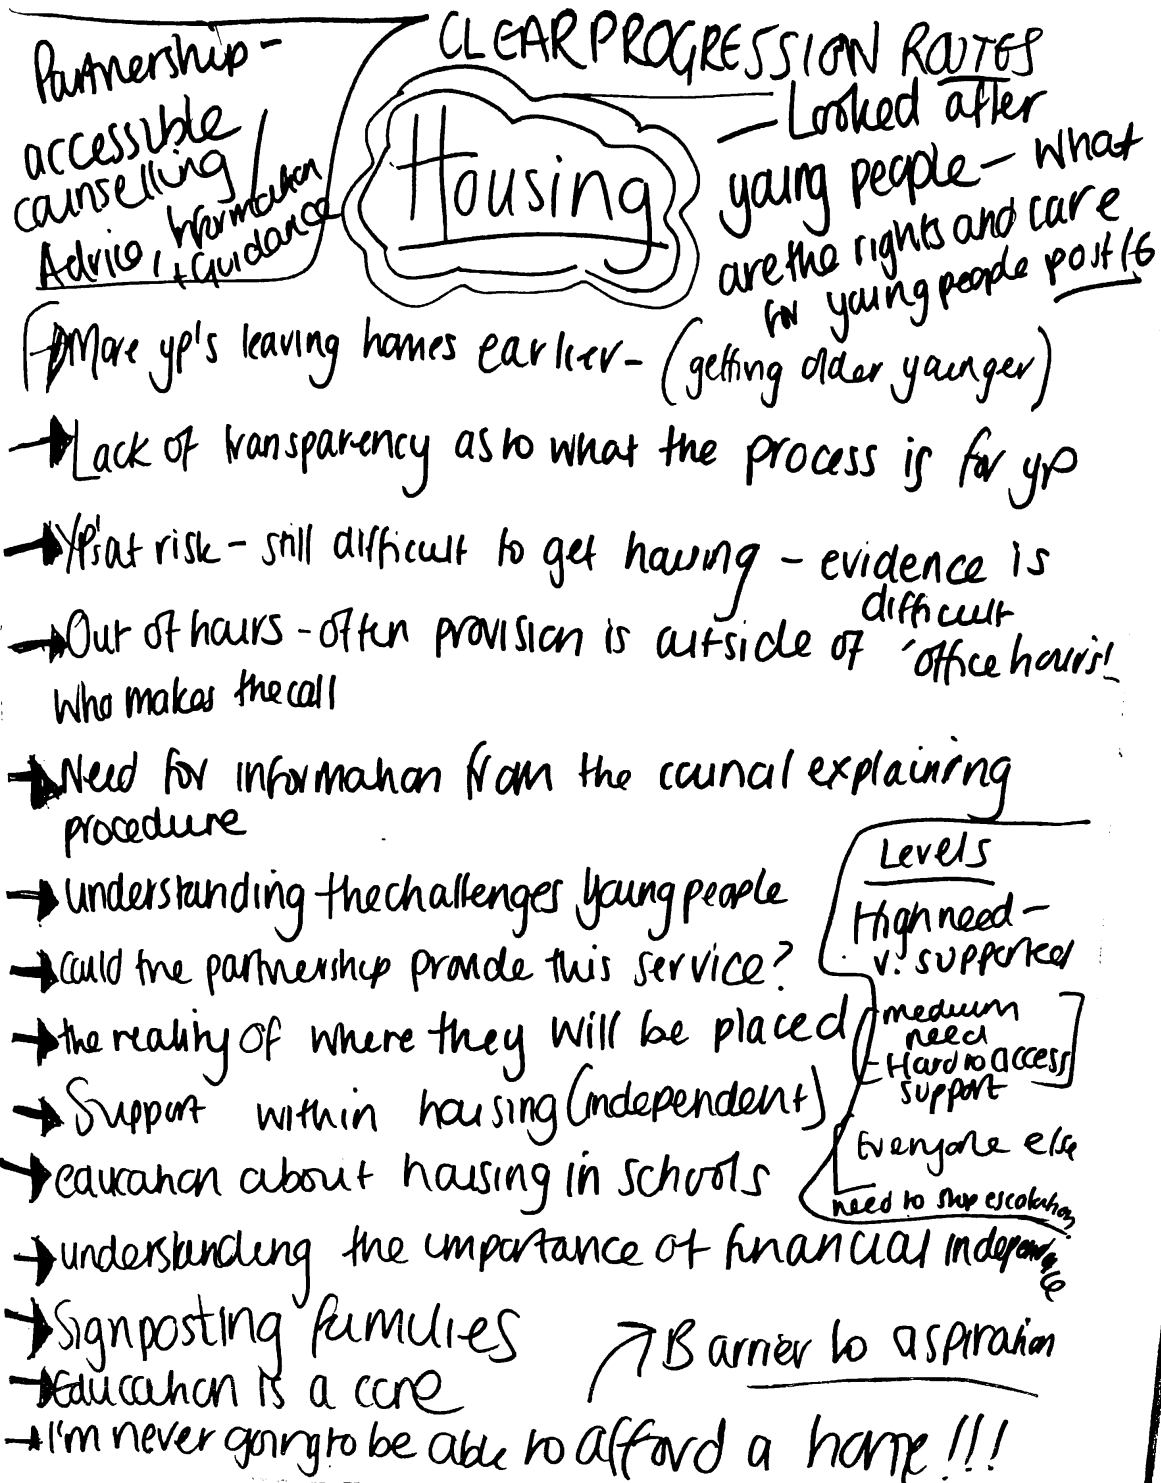 Partnership -
accessible
counselling /
Advice, Information
+ Guidance
CLEAR PROGRESSION ROUTES
Housing
- Looked after
young people - what
are the rights and care
for young people post 16
More yp's leaving homes earlier - (getting older younger)
Lack of transparency as to what the process is for yp
YP's at risk - still difficult to get housing - evidence is
difficult
Out of hours - often provision is outside of 'office hours'
who makes the call
Need for information from the council explaining
procedure
understanding the challenges young people
could the partnership provide this service?
the reality of where they will be placed
Support within housing (independent)
education about housing in schools
understanding the importance of financial independence
Signposting families
Education is a core
I'm never going to be able to afford a home!!!
Barrier to aspiration
Levels
High need -
v. supported
medium
need
- Hard to access
support
Everyone else
need to stop escalation